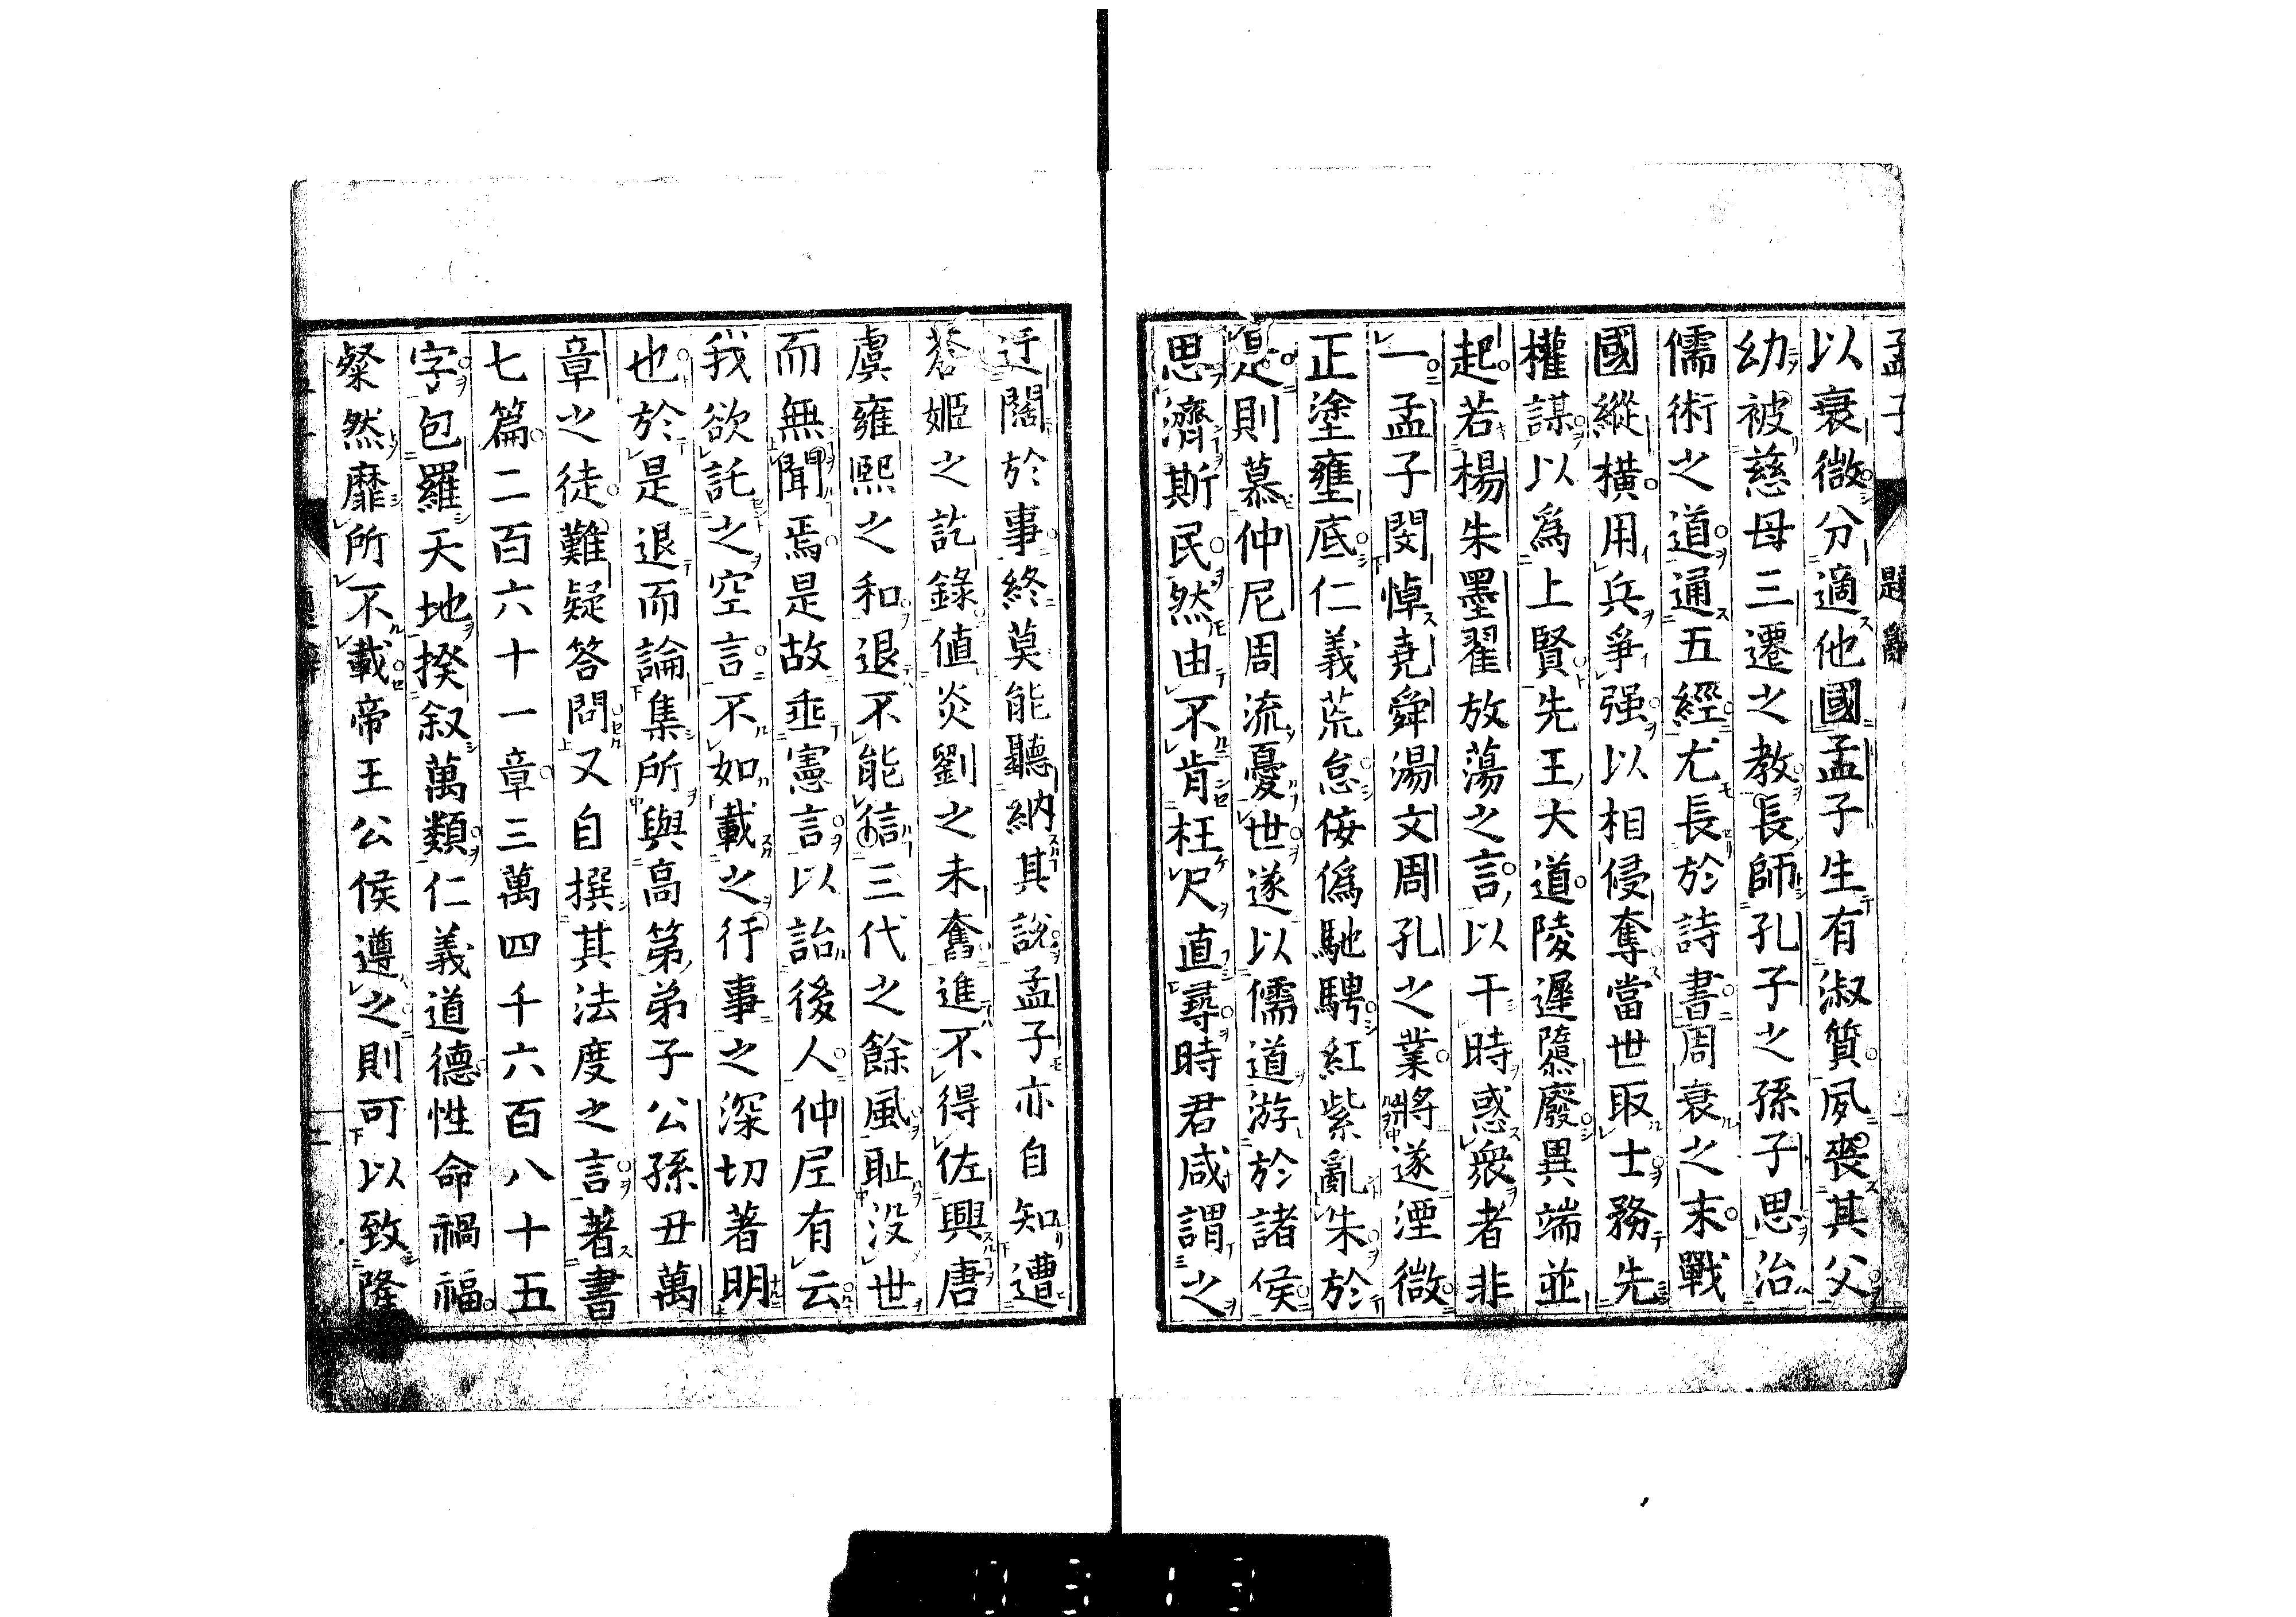 以衰微分適他國孟子生有淑質夙喪其父
幼被慈母三遷之教長師孔子之孫子思治
儒術之道通五經尤長於詩書周衰之末戰
國縱橫用兵爭强以相侵奪當世取士務先
權謀以爲上賢先王大道陵遲隳廢異端並
起若楊朱墨翟放蕩之言以干時惑衆者非
一孟子閔悼堯舜湯文周孔之業將遂湮微
正塗壅底仁義荒怠佞僞馳騁紅紫亂朱於
是則慕仲尼周流憂世遂以儒道游於諸侯
思濟斯民然由不肯枉尺直尋時君咸謂之
迂闊於事終莫能聽納其說孟子亦自知遭
蒼姬之訖錄値炎劉之未奮進不得佐興唐
虞雍熙之和退不能信三代之餘風耻没世
而無聞焉是故垂憲言以詒後人仲尼有云
我欲託之空言不如載之行事之深切著明
也於是退而論集所與高第弟子公孫丑萬
章之徒難疑答問又自撰其法度之言著書
七篇二百六十一章三萬四千六百八十五
字包羅天地揆叙萬類仁義道德性命禍福
粲然靡所不載帝王公侯遵之則可以致隆